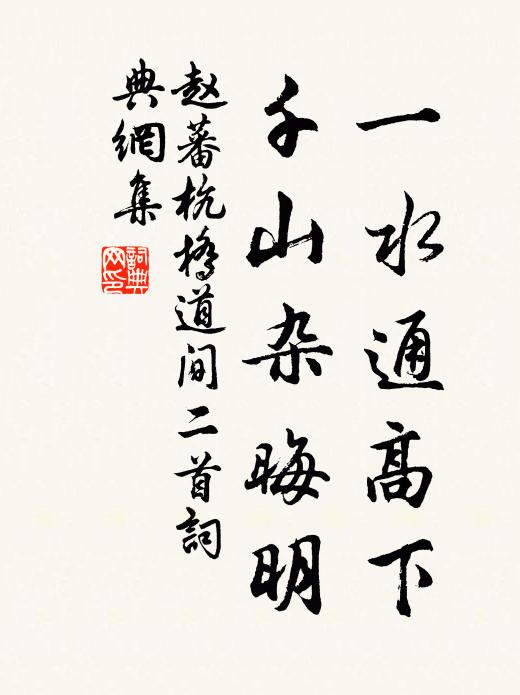 一水通高下
千山杂晦明
赵蕃杭橋道间二首詞
典網集
詞典
网印